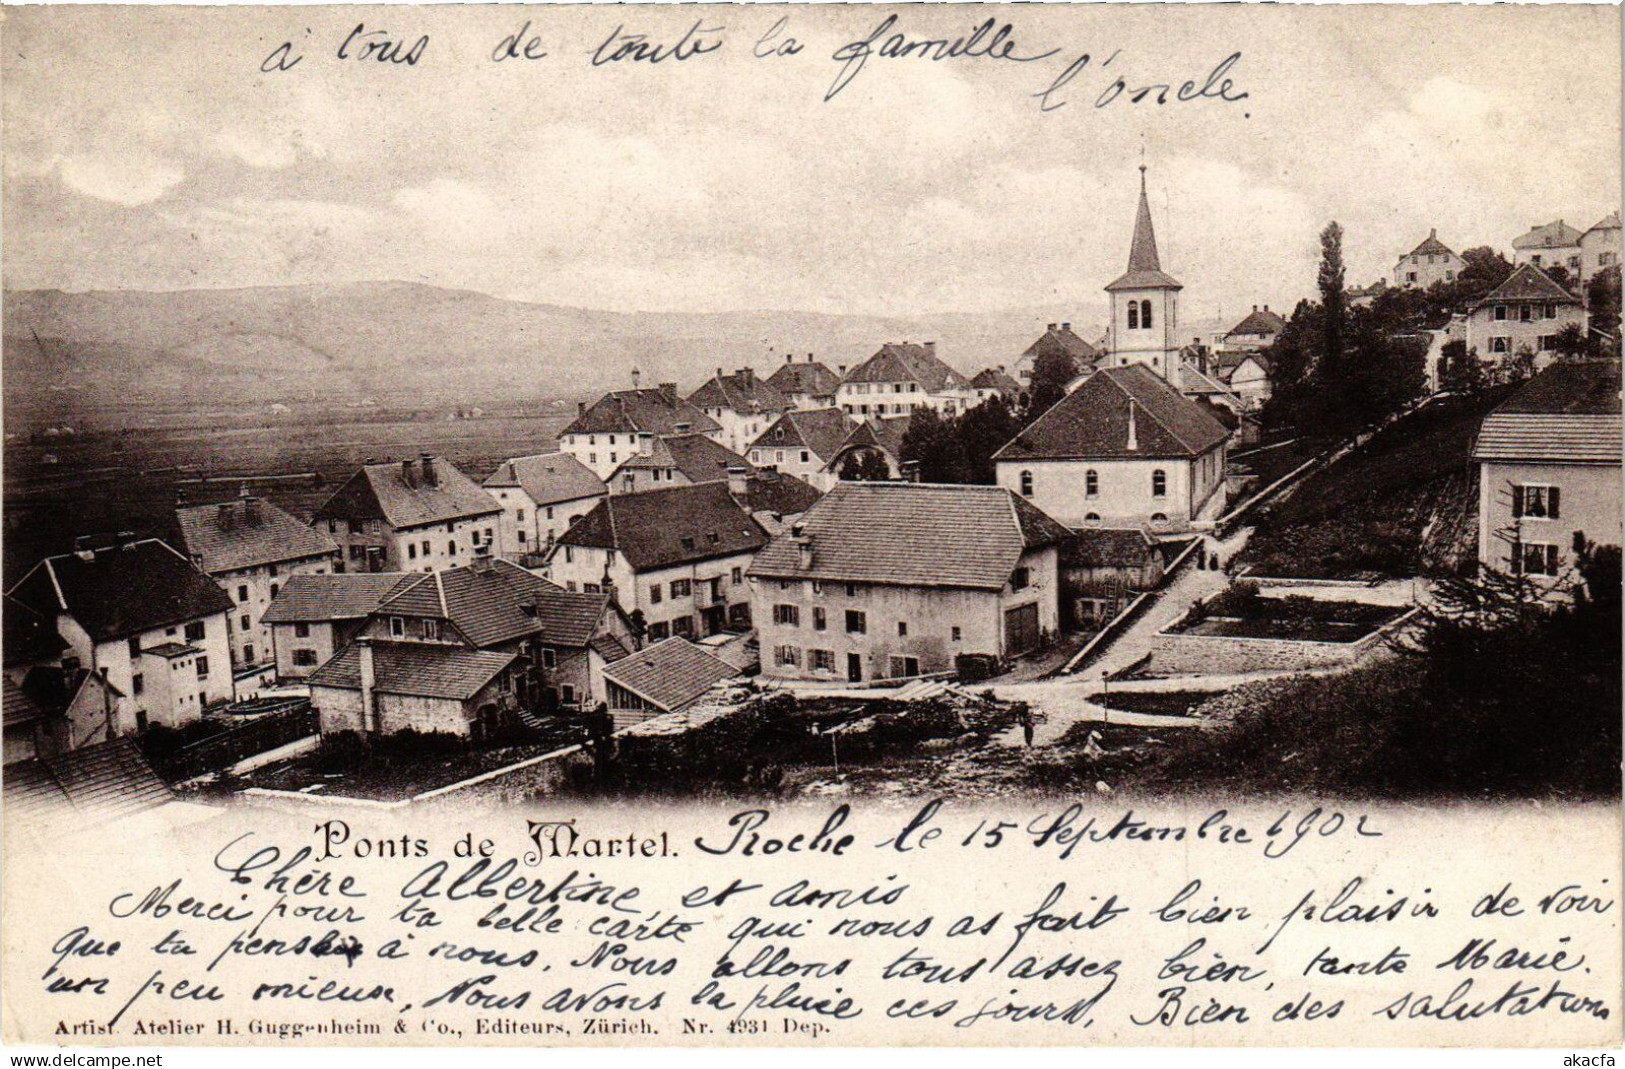 à tous de toute la famille
l'oncle.
Ponts de Martel. Roche le 15 Septembre 1902
Chère Albertine et amis
Merci pour ta belle carte qui nous as fait bien plaisir de voir
que tu pensais à nous. Nous allons tous assez bien, tante Marie.
un peu mieux, Nous avons la pluie ces jours. Bien des salutations
Artist. Atelier H. Guggenheim & Co., Editeurs, Zürich. Nr. 4931 Dep.
akacfa